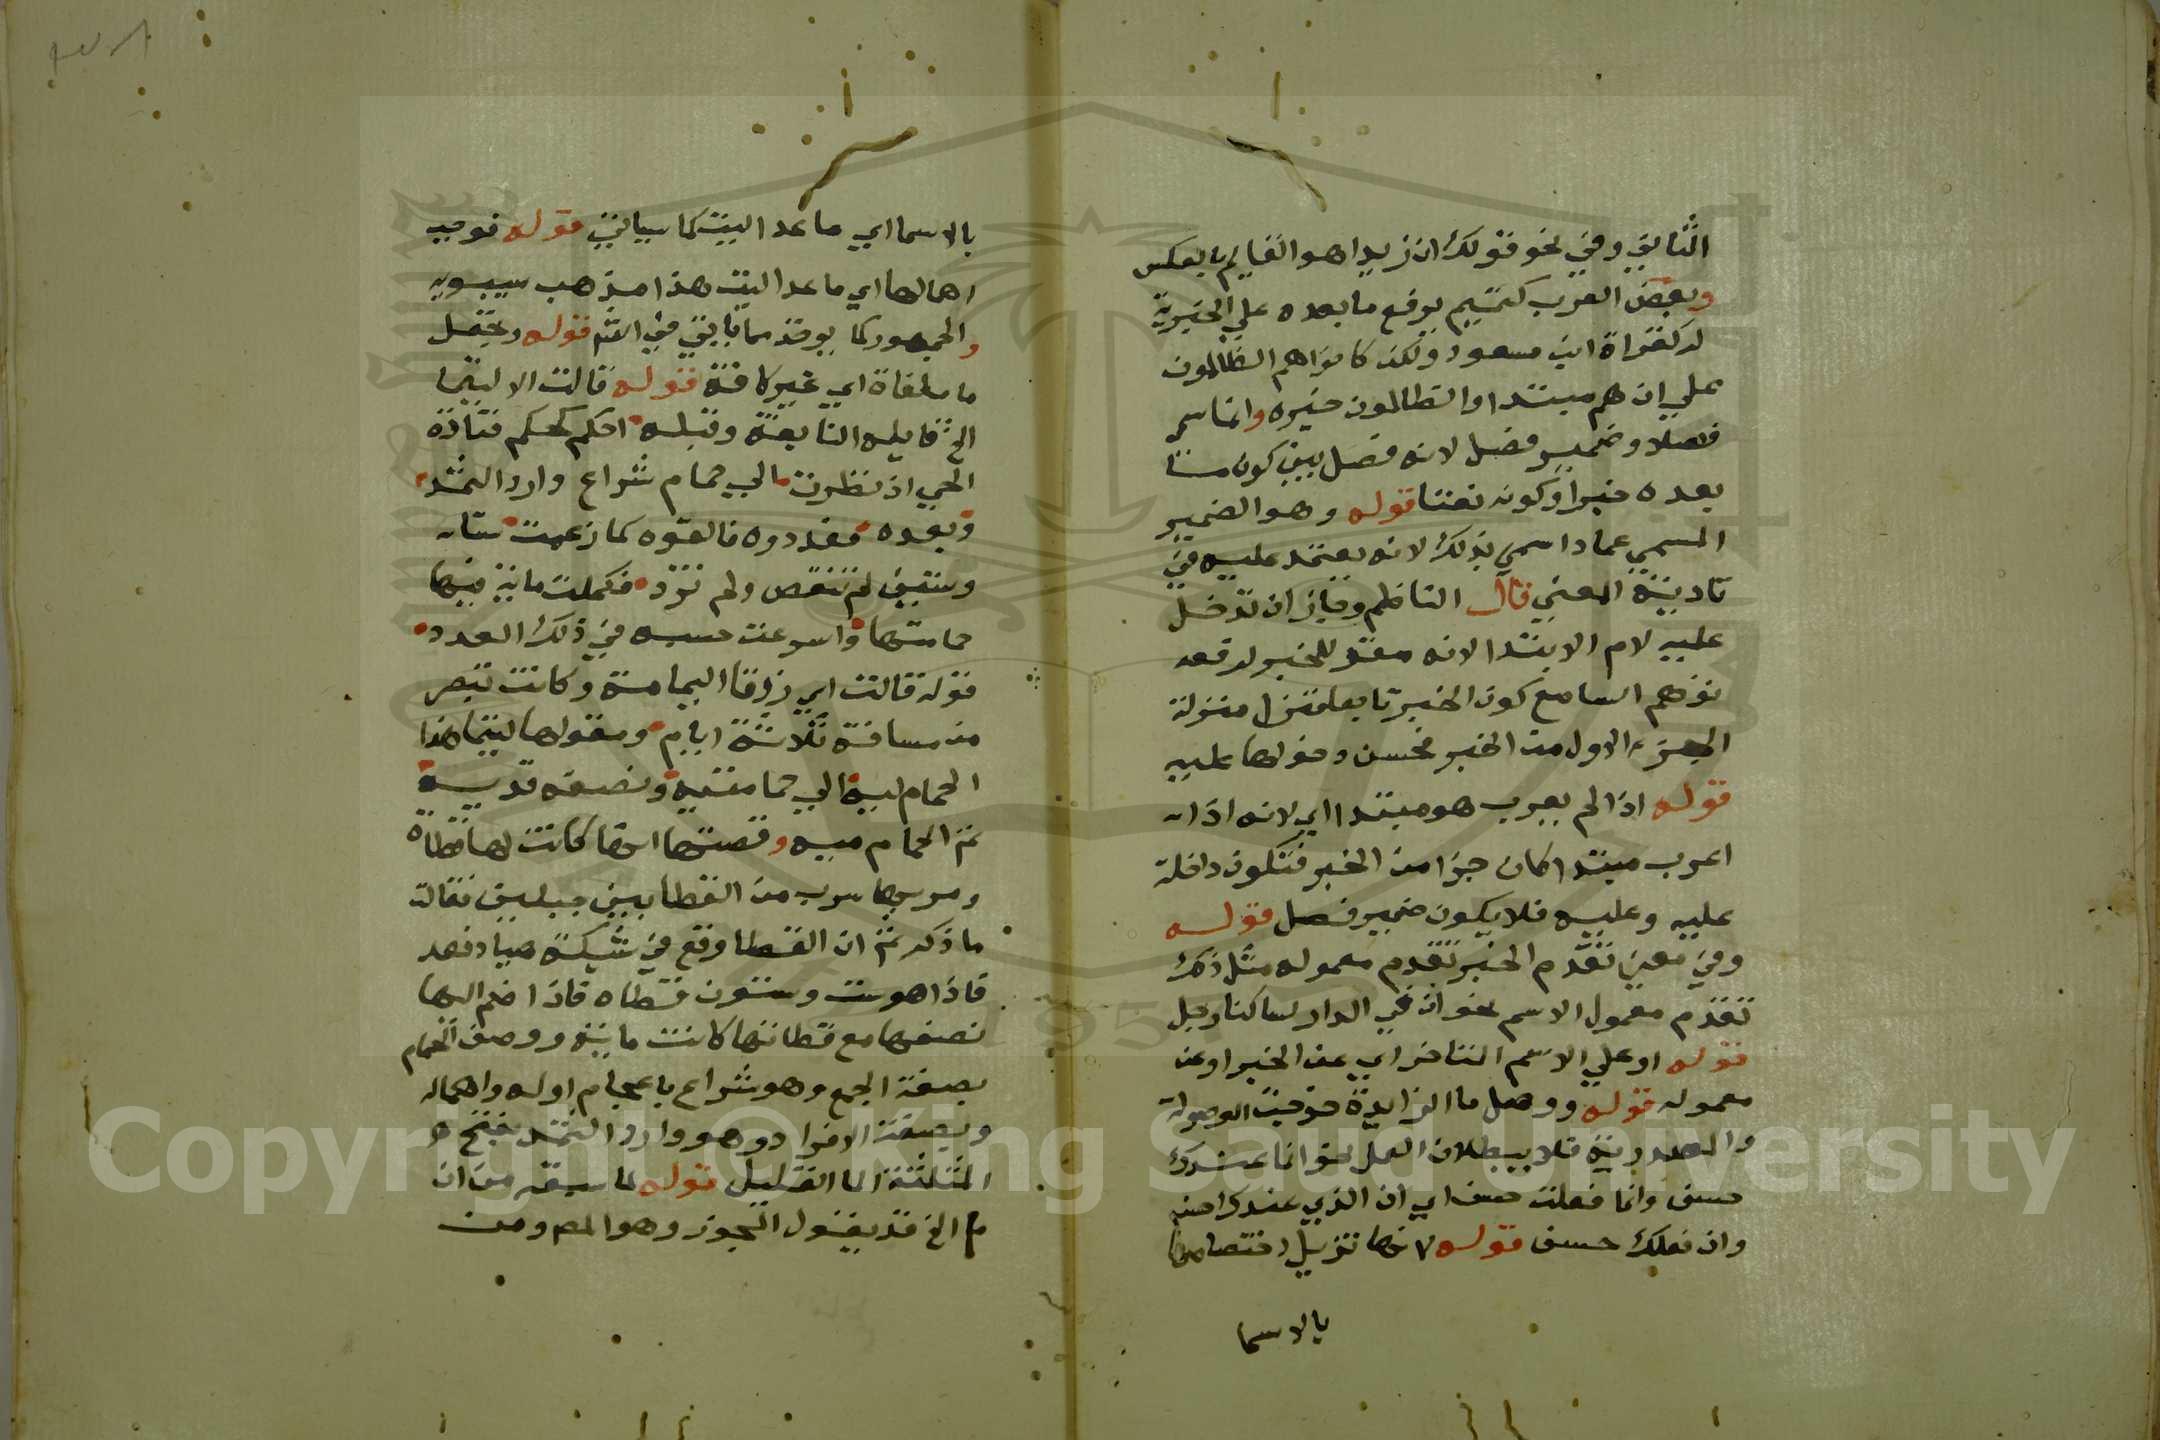 الثاني وفي نحو قولك ان زيدا هو القايم بالعكس
وبعض العرب كتميم يرفع ما بعده علي الخبرية
كقراة ابن مسعود ولكن كانوا هم الظالمون
علي ان هم مبتدا والظالمون خبره وانما سمي
فصلا وضمير فصل لانه فصل بين كون ما
بعده خبرا وكونه نعتا قوله وهو الضمير
المسمي عمادا سمي بذلك لانه يعتمد عليه في
تادية المعني قال الناظم وجاز ان تدخل
عليه لام الابتدا لانه مقو للخبر لرفعه
توهم السامع كون الخبر تابعا فتنزل منزلة
الجزء الاول من الخبر فحسن دخولها عليه
قوله اذا لم يعرب هو مبتدا اي لانه اذا
اعرب مبتدا كان جزا من الخبر فتكون داخلة
عليه وعليه فلا يكون ضمير فصل قوله
وفي معني تقدم الخبر تقدم معموله مثل ذلك
تقدم معمول الاسم نحو ان في الدار لساكنا رجل
قوله او علي الاسم المتاخر اي عن الخبر او عن
معموله قوله ووصل ما الزايدة خرجت الموصولة
والمصدرية فلا يبطلان العمل نحو انما عندك
حسن وانما فعلت حسن اي ان الذي عندك حسن
وان فعلك حسن قوله لانها تزيل اختصاصها
بالاسما
بالاسما اي ما عدا ليت كما سياتي قوله فوجب
اهمالها اي ما عدا ليت هذا مذهب سيبويه
والجمهور كما يوخذ مما ياتي في قوله وتجعل
ما ملغاة اي غير كافة قوله قالت الا ليتما
الخ قايله النابغة وقبله احكم كحكم فتاة
الحي اذ نظرت الي حمام شراع وارد الثمد
وبعده فعددوه فالفوه كما زعمت ستا
وستين لم تنقص ولم تزد فكملت ماية فيها
حمامتها واسرعت حسبه في ذلك العدد
قوله قالت اي زرقا اليمامة وكانت تبصر
من مسافة ثلاثة ايام ومقولها ليتما هذا
الحمام ليه الي حمامتيه ونصفه قديه
تم الحمام ميه وقصتها انها كانت لها قطاة
ومر بها سرب من القطا بين جبلين فقالت
ما ذكر ثم ان القطا وقع في شبكة صياد فعد
فاذا هو ست وستون قطاه فاذا ضم اليها
نصفها مع قطاتها كانت ماية ووصف الحمام
بصفة الجمع وهو شراع باعجام اوله واهماله
وبصفة الافراد وهو وارد الثمد بفتح
المثلثة الما القليل قوله لما سبق من ان
ما الخ قد يقول المجوز وهو المص ومن